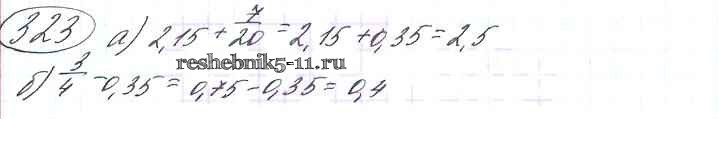 323 а) 2,15 + 7/20 = 2,15 + 0,35 = 2,5
reshebnik5-11.ru
б) 3/4 - 0,35 = 0,75 - 0,35 = 0,4